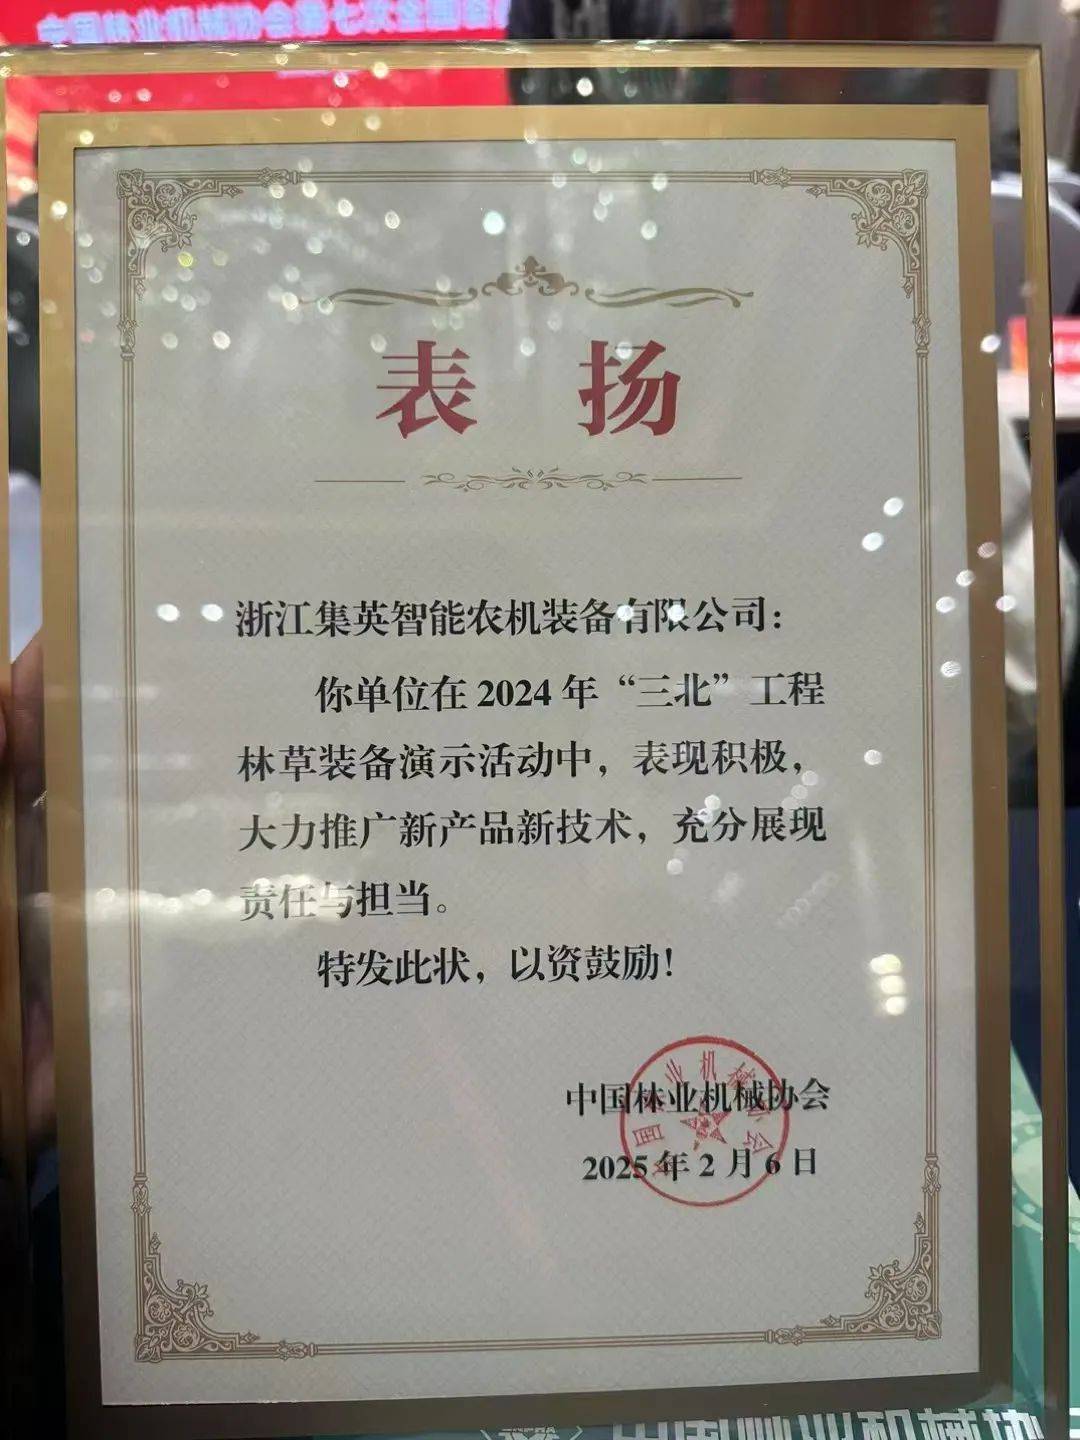 中国林业机械协会第七次全国会
表 扬
浙江集英智能农机装备有限公司：
你单位在 2024 年“三北”工程
林草装备演示活动中，表现积极，
大力推广新产品新技术，充分展现
责任与担当。
特发此状，以资鼓励！
中国林业机械协会
2025 年 2 月 6 日
中国林业机械协会
中国林业机械协